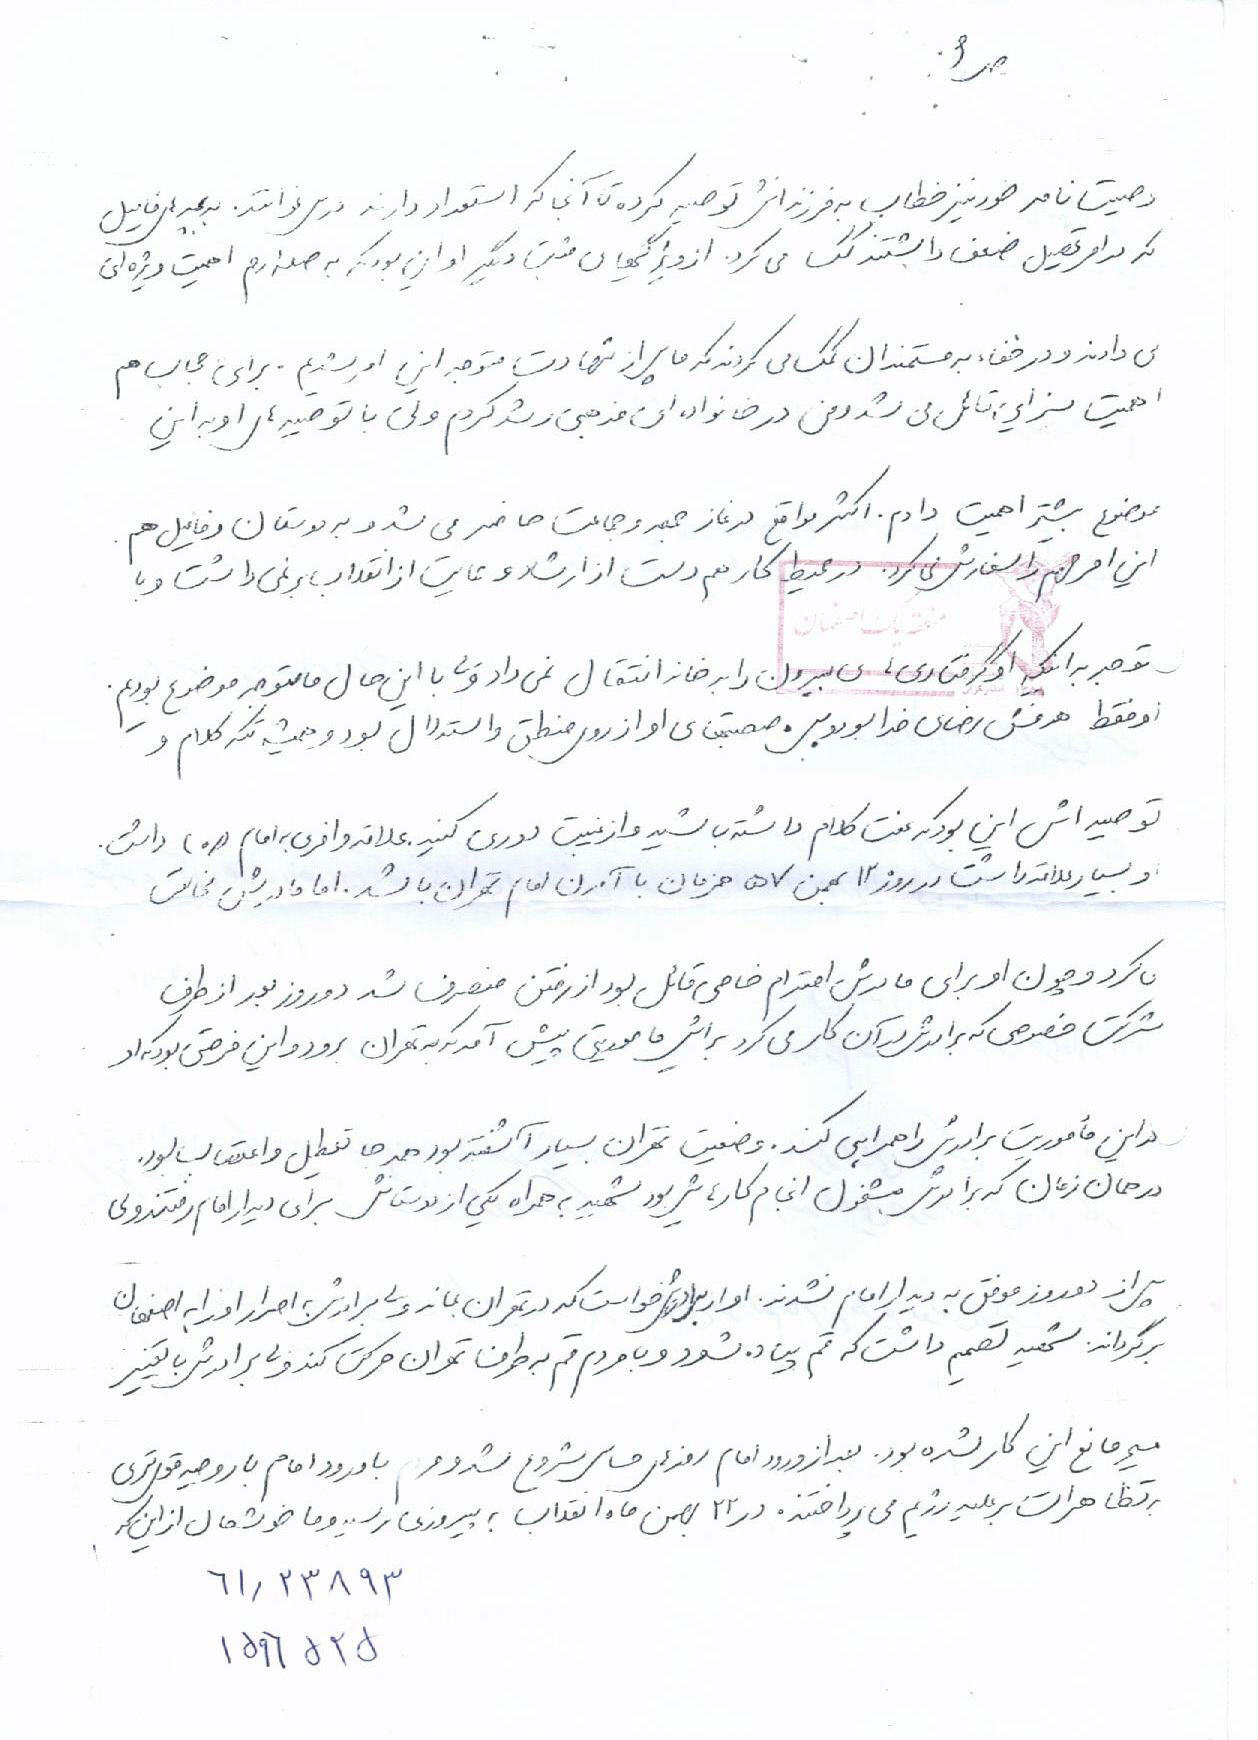 ص ۶
وصیت نامه خود نیز خطاب به فرزندانش توصیه کرده تا آنجا که استعداد دارند درس بخوانند. به بچه های فامیل
که در امر تحصیل ضعف داشتند کمک می کرد. از ویژگیهای مثبت دیگر او این بود که به صله ارحم اهمیت ویژه ای
می دادند و در خفاء به مستمندان کمک می کردند که ما پس از شهادت متوجه این امر شدیم. برای حجاب هم
اهمیت بسزایی قائل می شد و من در خانواده ای مذهبی رشد کردم ولی با توصیه های او به این
موضوع بیشتر اهمیت دادم. اکثر مواقع در نماز جمعه و جماعت حاضر می شد و به دوستان و فامیل هم
این امر مهم را سفارش می کرد. در محیط کار هم دست از ارشاد و حمایت از انقلاب برنمی داشت و با
توجه به اینکه او گرفتاری های بیرون را به خانه انتقال نمی داد ولی با این حال ما متوجه موضوع بودیم.
او فقط هدفش رضای خدا بود و بس. صحبتهای او از روی منطق و استدلال بود و همیشه تکه کلام و
توصیه اش این بود که عفت کلام داشته باشید و از غیبت دوری کنید. علاقه وافری به امام (ره) داشت.
او بسیار علاقه داشت در روز ۱۲ بهمن ۵۷ همزمان با آمدن امام تهران باشد. اما مادرش مخالفت
کرد و چون او برای مادرش احترام خاصی قائل بود از رفتن منصرف شد دو روز بعد از طرف
شرکت خصوصی که برادرش در آن کار می کرد برایش مأموریتی پیش آمد که به تهران برود و این فرصتی بود که او
در این مأموریت برادرش را همراهی کند. وضعیت تهران بسیار آشفته بود همه جا تعطیل و اعتصاب بود.
در همان زمان که برادرش مشغول انجام کارهایش بود شهید به همراه یکی از دوستانش برای دیدار امام رفتند ولی
پس از دو روز موفق به دیدار امام نشدند. او از برادرش خواست که در تهران بماند ولی برادرش به اصرار او را به اصفهان
برگرداند. شهید تصمیم داشت که قم پیاده شود و با مردم قم به طرف تهران حرکت کند ولی برادرش با تغییر
مسیر مانع این کار شده بود. بعد از ورود امام روزهای حساس شروع شد و مردم با ورود امام با روحیه قوی تری
به تظاهرات بر علیه رژیم می پرداختند. در ۲۲ بهمن ماه انقلاب به پیروزی رسید و ما خوشحال از این که
منطقه یک اصفهان
۶۱/۲۳۸۹۳
۱۵۹۶۵۲۵